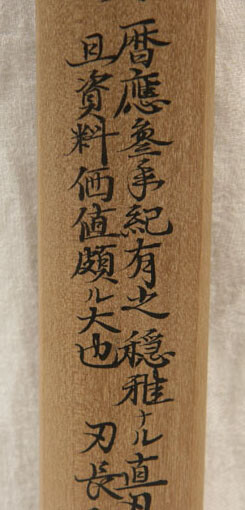 暦應参年紀有之 穏雅ナル直刃
且資料価値頗ル大也 刃長